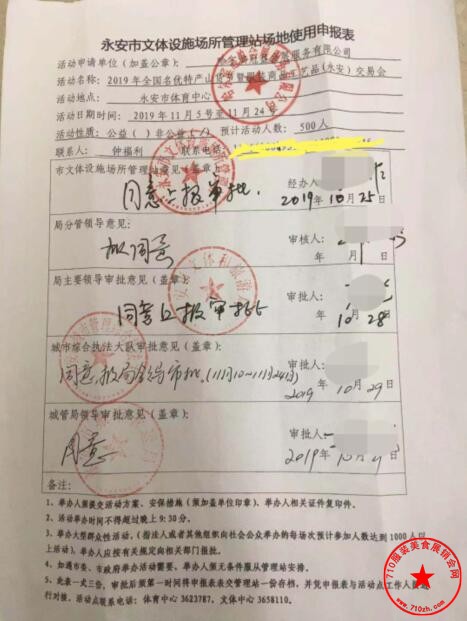 永安市文体设施场所管理站场地使用申报表
活动申请单位（加盖公章）：
服务有限公司
活动名称：2019年全国名优特产山货
商品工艺品(永安)交易会
活动地点： 永安市体育中心
活动日期时间：2019年11月5号至11月24号
活动性质：公益（ ）非公益（✓） 预计活动人数：500人
联系人： 钟福利 联系电话：
市文体设施场所管理站意见（盖章）：
同意上报审批.
经办人：
2019年10月25日
局分管领导意见：
拟同意
审核人：
年 月 日
局主要领导审批意见（盖章）：
同意上报审批
审批人：
年10月28
城市综合执法大队审批意见（盖章）：
同意,报局领导审批.(11月10~11月24日)
审批人：
2019年10月29日
城管局领导审批意见（盖章）：
同意
审批人：
2019年10月 日
备注：
1、举办人须提交活动方案、安保措施（须加盖单位印章）、举办人相关证件复印件。
2、活动举办时间不得超过晚上9:30分。
3、举办大型群众性活动，（指法人或者其他组织向社会公众举办的每场次预计参加人数达到1000人以
上活动）、举办人应按有关规定向相关部门报批。
4、如遇市委、市政府举办活动需要，举办人须无条件服从管理站安排。
5、此表一式三份，审批后须第一时间将申报表交管理站一份存档，并凭申报表与活动点工作人员进
行对接。活动点联系电话：体育中心3623787、文体中心3658110。
710服装美食展销会网
www.710zh.com